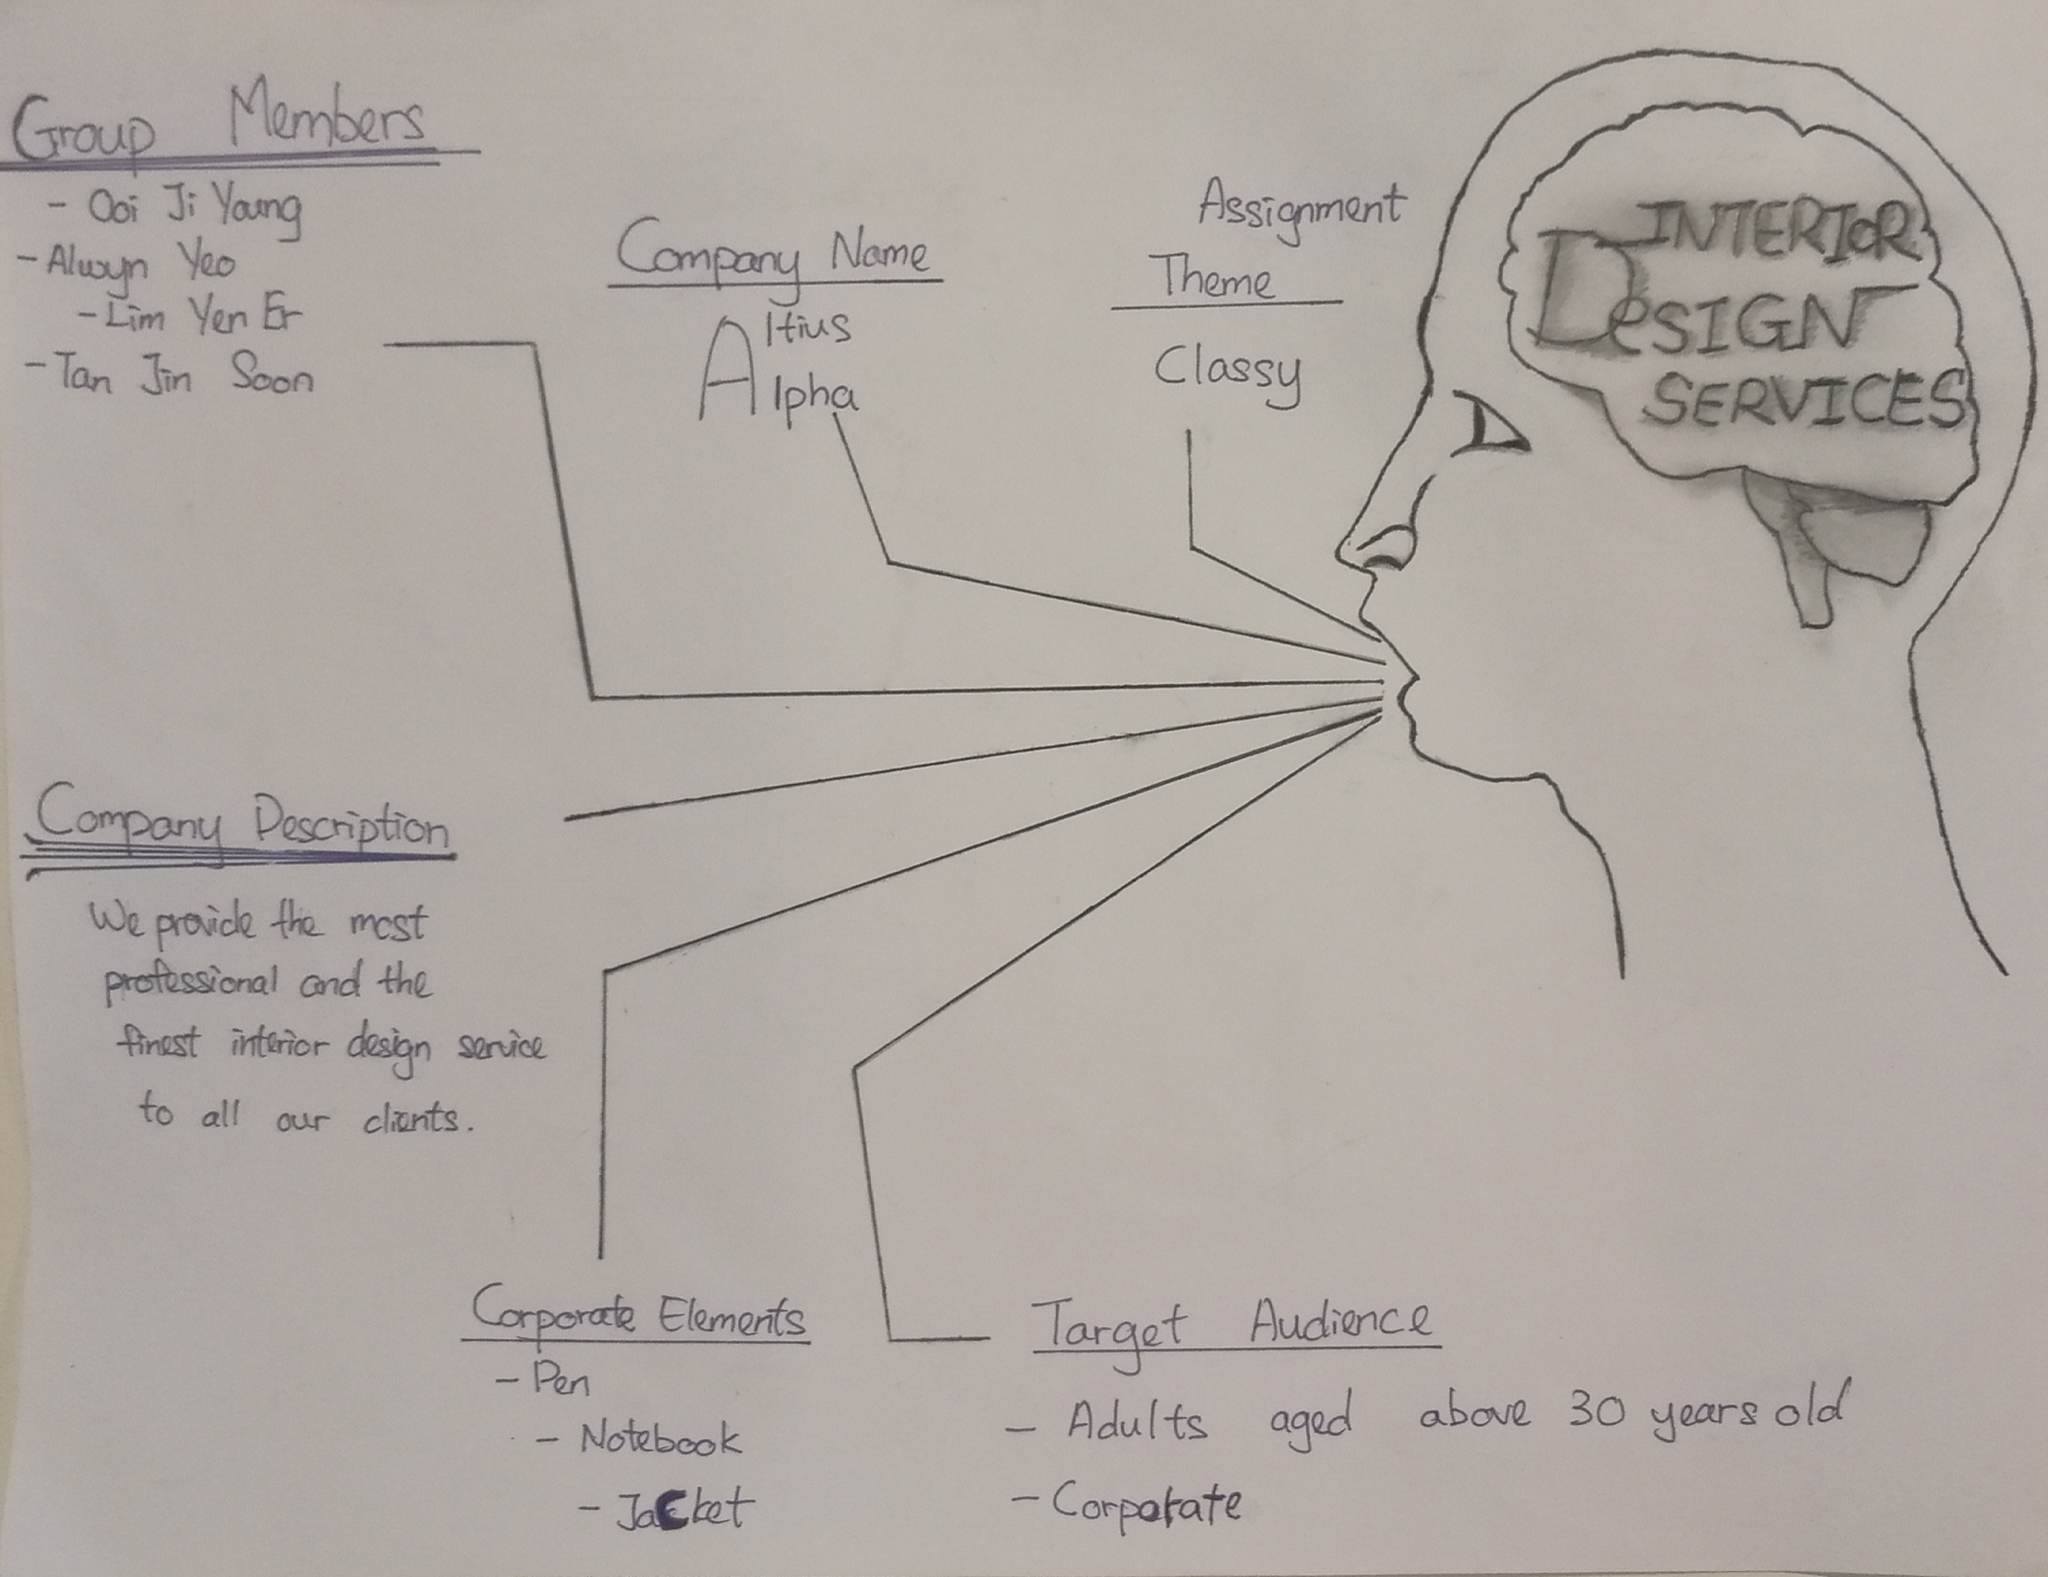 Group Members
- Ooi Ji Young
- Alwyn Yeo
- Lim Yen Er
- Tan Jin Soon
Company Name
Altius
Alpha
Assignment
Theme
Classy
INTERIOR
DESIGN
SERVICES
Company Description
We provide the most
professional and the
finest interior design service
to all our clients.
Corporate Elements
- Pen
- Notebook
- Jacket
Target Audience
- Adults aged above 30 years old
- Corporate